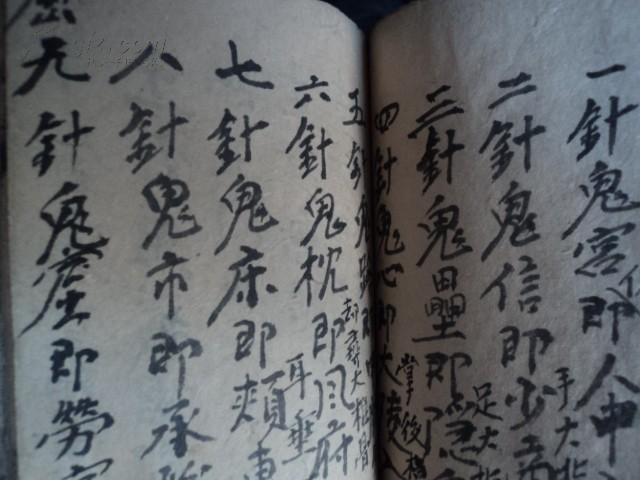 一針鬼宮即人中
手大指
二針鬼信即少商
足大指
三針鬼壘即隱
掌後橫
四針鬼心即大陵
五針鬼路即
六針鬼枕即風府
耳垂
七針鬼床即頰車
八針鬼市即承
九針鬼窟即勞宮